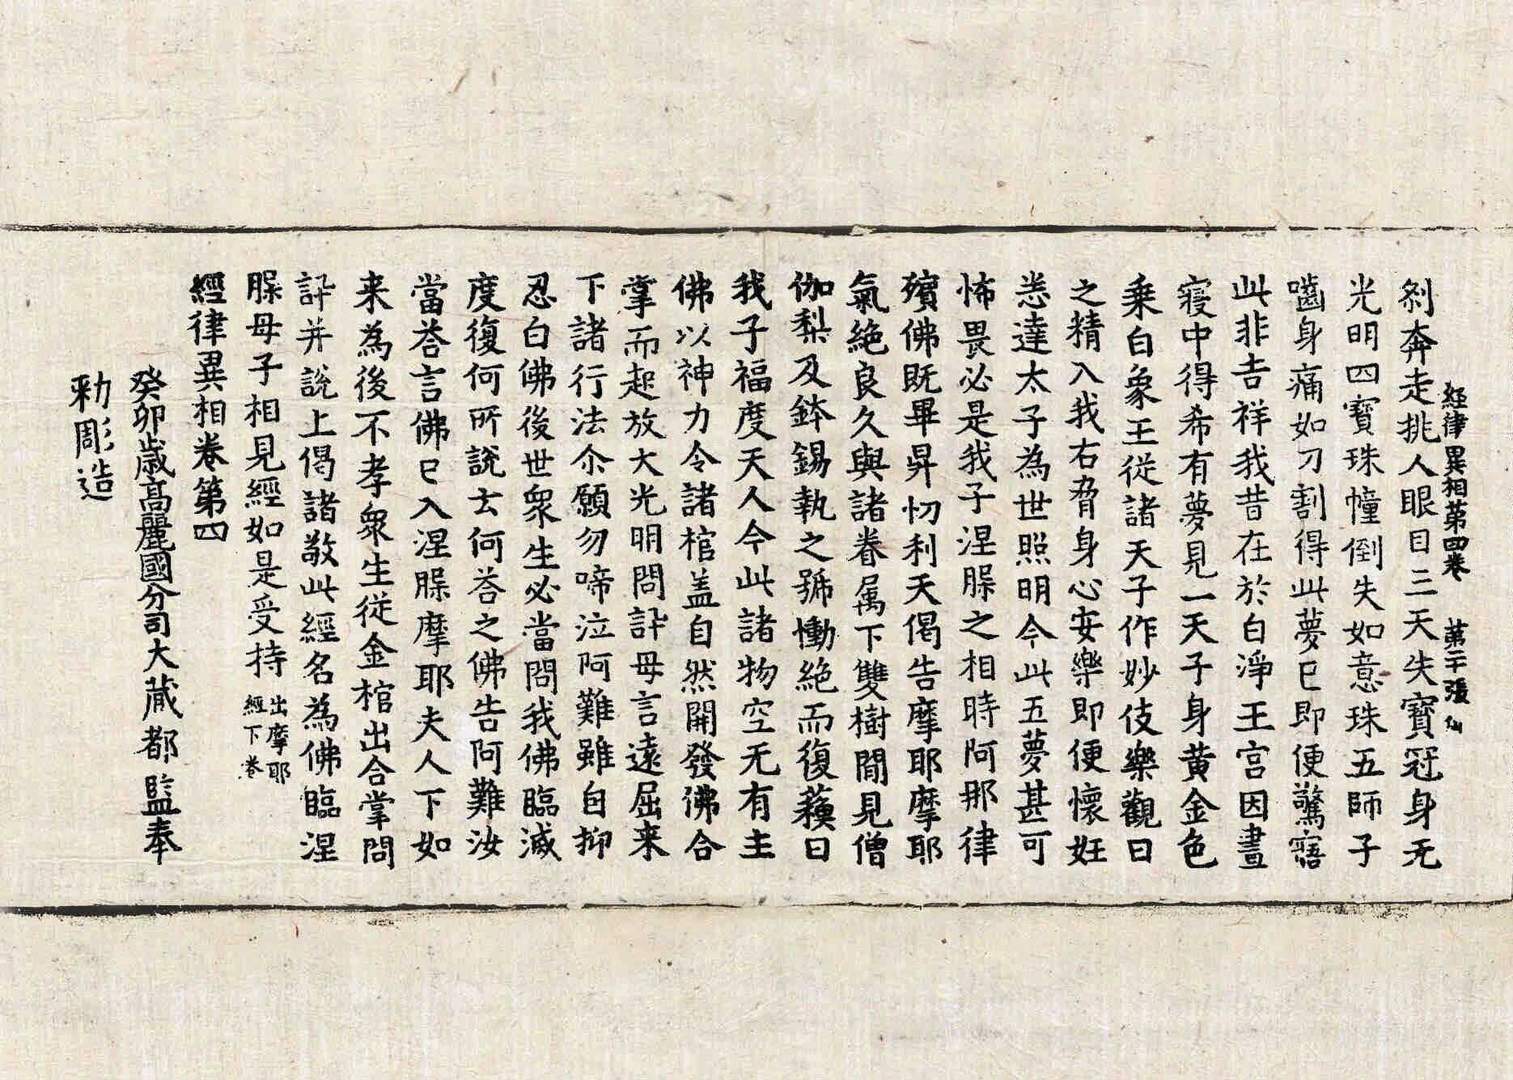 経律異相苐四卷 苐二十張 仙
剎奔走挑人眼目三天失寶冠身无
光明四寶珠幢倒失如意珠五師子
嚙身痛如刀割得此夢已即便驚寤
此非吉祥我昔在於白淨王宮因晝
寢中得希有夢見一天子身黃金色
乗白象王從諸天子作妙伎樂觀日
之精入我右脅身心安樂即便懷妊
悉達太子為世照明今此五夢甚可
怖畏必是我子涅槃之相時阿那律
殯佛既畢昇忉利天偈告摩耶摩耶
氣絶良久與諸眷属下雙樹間見僧
伽梨及鉢錫執之號慟絶而復蘓曰
我子福度天人今此諸物空无有主
佛以神力令諸棺盖自然開發佛合
掌而起放大光明問訊母言遠屈来
下諸行法尒願勿啼泣阿難雖自抑
忍白佛後世衆生必當問我佛臨滅
度復何所說去何荅之佛告阿難汝
當荅言佛已入涅槃摩耶夫人下如
来為後不孝衆生從金棺出合掌問
訊并說上偈諸敬此經名為佛臨涅
槃母子相見經如是受持 出摩耶經下卷
經律異相卷第四
癸卯歲高麗國分司大蔵都監奉
勑彫造